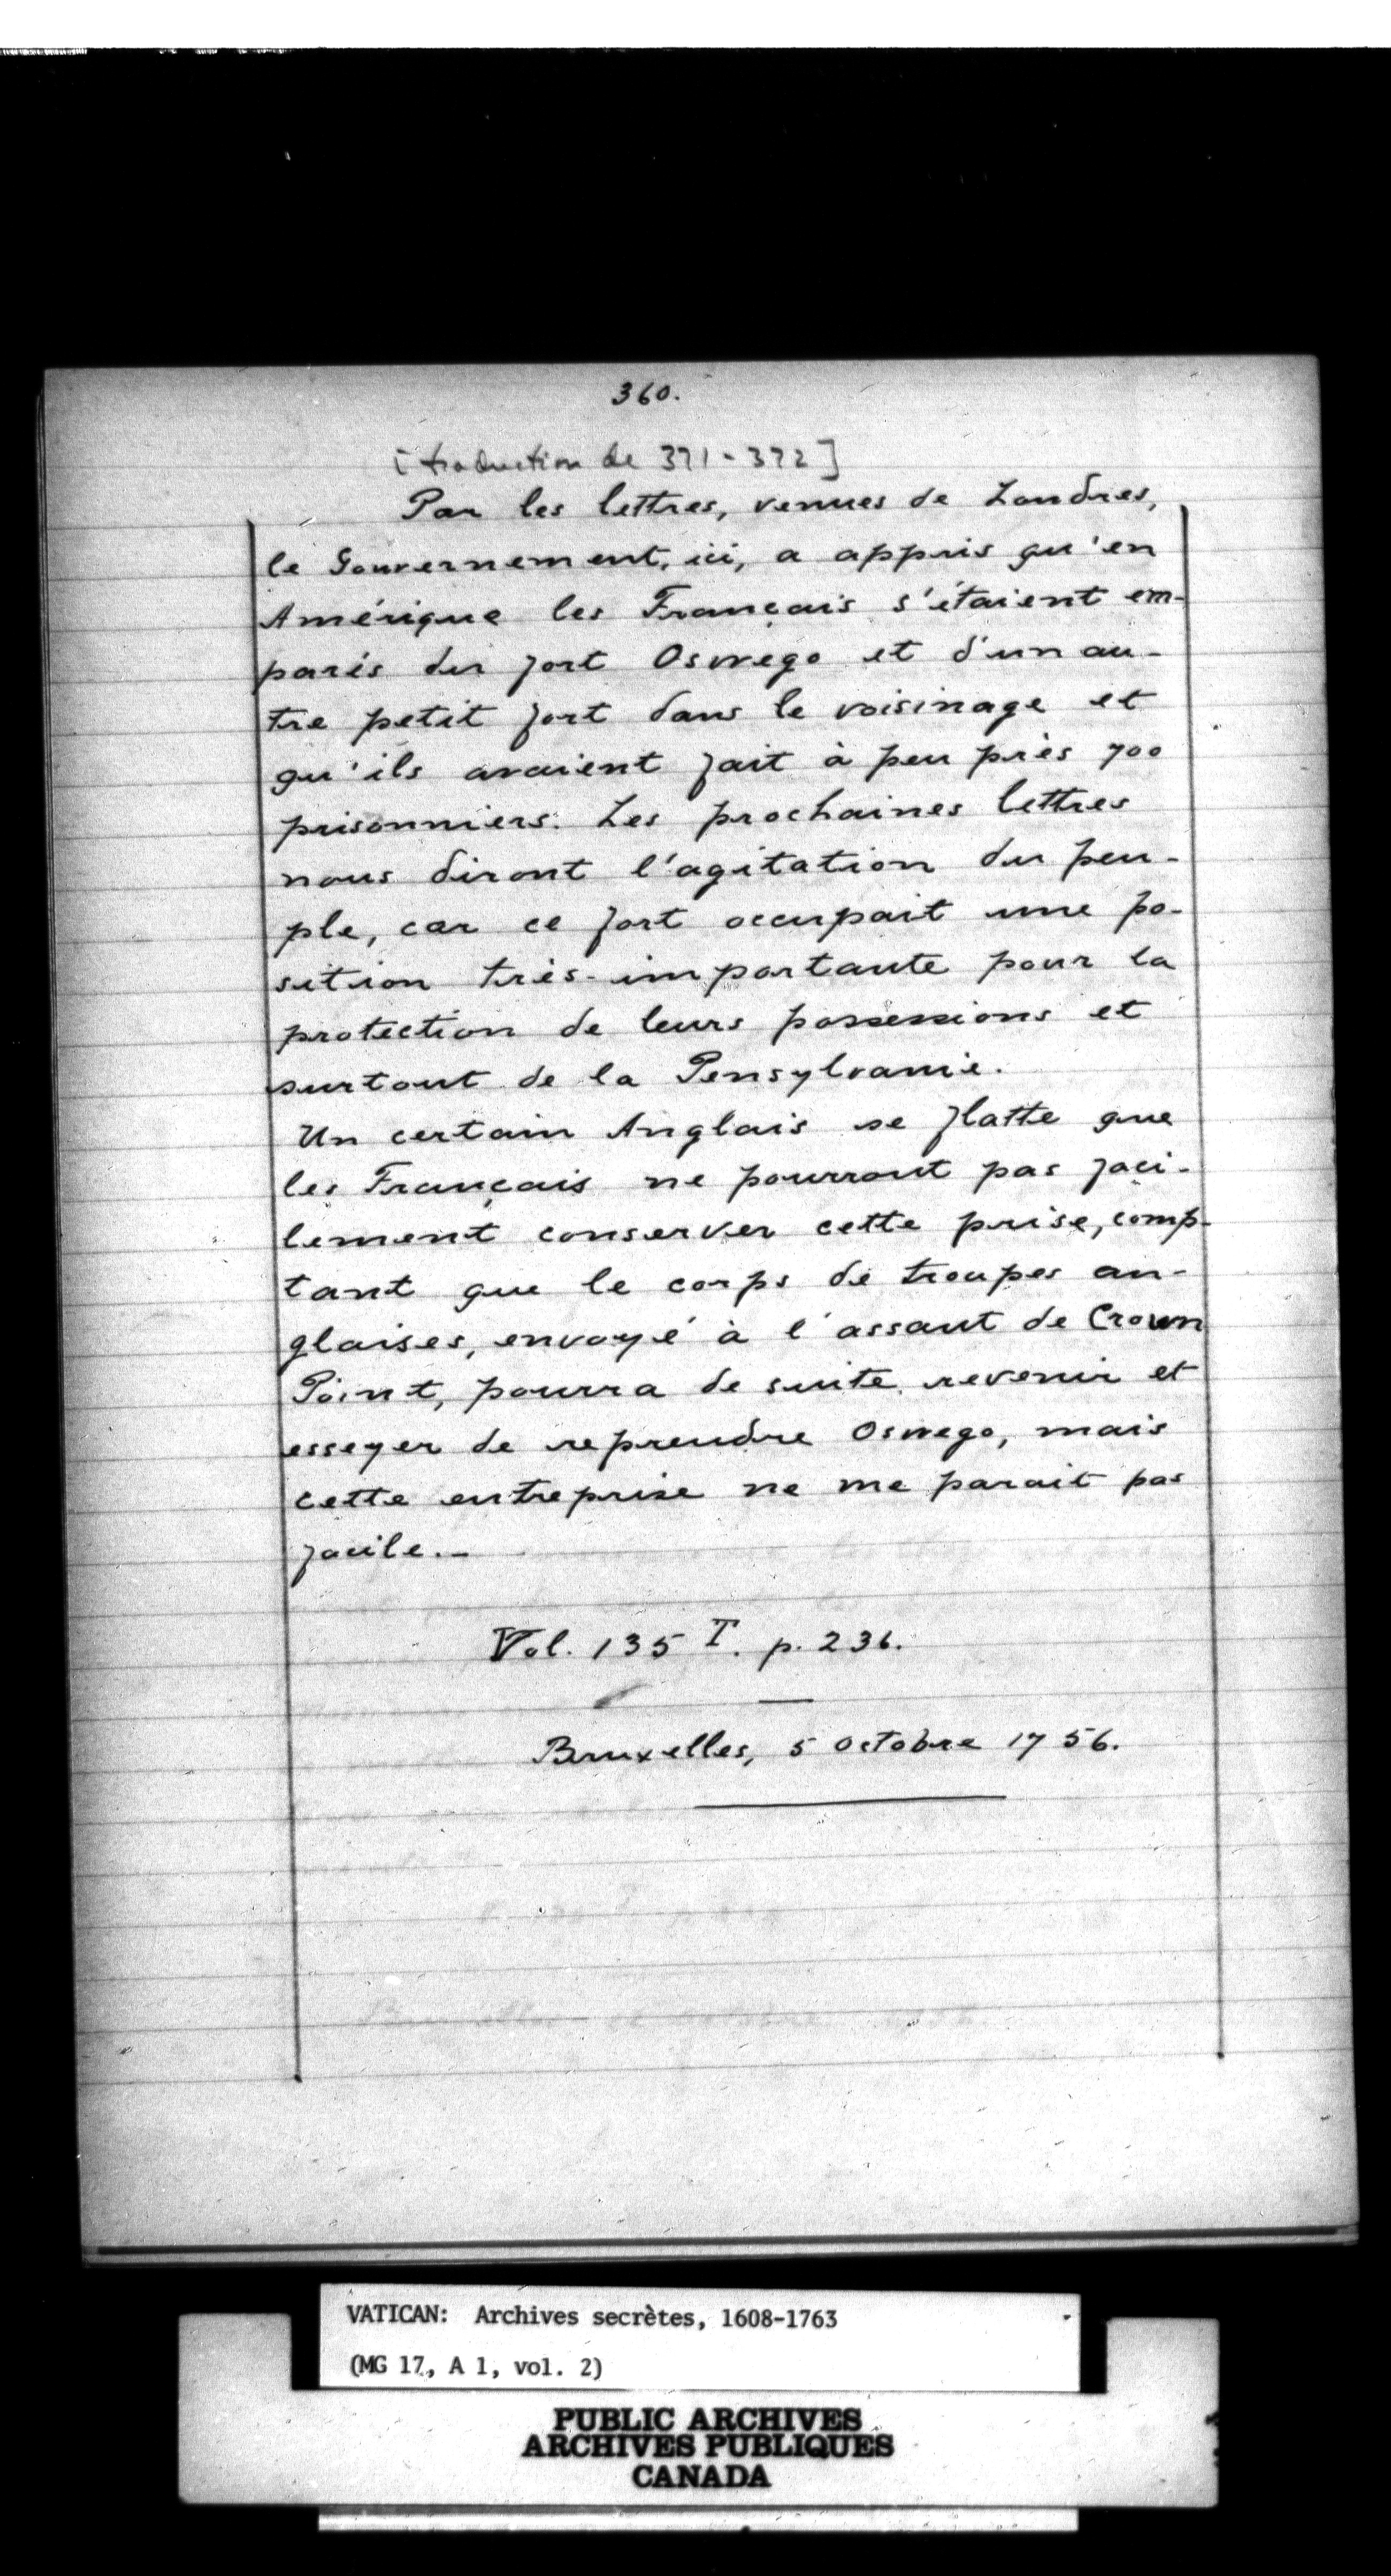 360.
[traduction de 371-372]
Par les lettres, venues de Londres,
le Gouvernement, ici, a appris qu'en
Amérique les Français s'étaient em-
parés du fort Oswego et d'un au-
tre petit fort dans le voisinage et
qu'ils avaient fait à peu près 700
prisonniers. Les prochaines lettres
nous diront l'agitation du peu-
ple, car ce fort occupait une po-
sition très-importante pour la
protection de leurs possessions et
surtout de la Pensylvanie.
Un certain Anglais se flatte que
les Français ne pourront pas faci-
lement conserver cette prise, comp-
tant que le corps de troupes an-
glaises, envoyé à l'assaut de Crown
Point, pourra de suite revenir et
essayer de reprendre Oswego, mais
cette entreprise ne me parait pas
facile.-
Vol. 135 I. p. 236.
Bruxelles, 5 octobre 1756.
VATICAN: Archives secrètes, 1608-1763
(MG 17, A 1, vol. 2)
PUBLIC ARCHIVES
ARCHIVES PUBLIQUES
CANADA